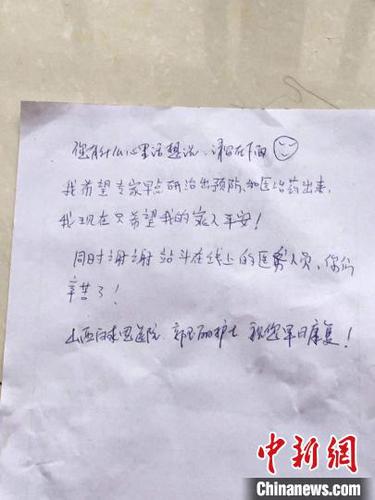 您有什么心里话想说、请留在下面
我希望专家早点研治出预防和医治药出来,
我现在只希望我的家人平安!
同时谢谢站斗在线上的医务人员、你们
辛苦了!
山西白求恩医院 郭 丽护士 祝您早日康复!
中新网
Chinanews.com